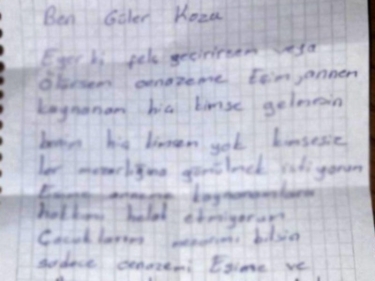 Ben Güler Kozu
Eğer ki felç geçirirsem veya
Ölürsem cenazeme Eşim, annem
kaynanam hiç kimse gelmesin
benim hiç kimsem yok kimsesiz
ler mezarlığına gömülmek istiyorum
Eşime anneme kaynanamlara
hakkımı helal etmiyorum
Çocuklarım mezarımı bilsin
sadece cenazemi Eşime ve